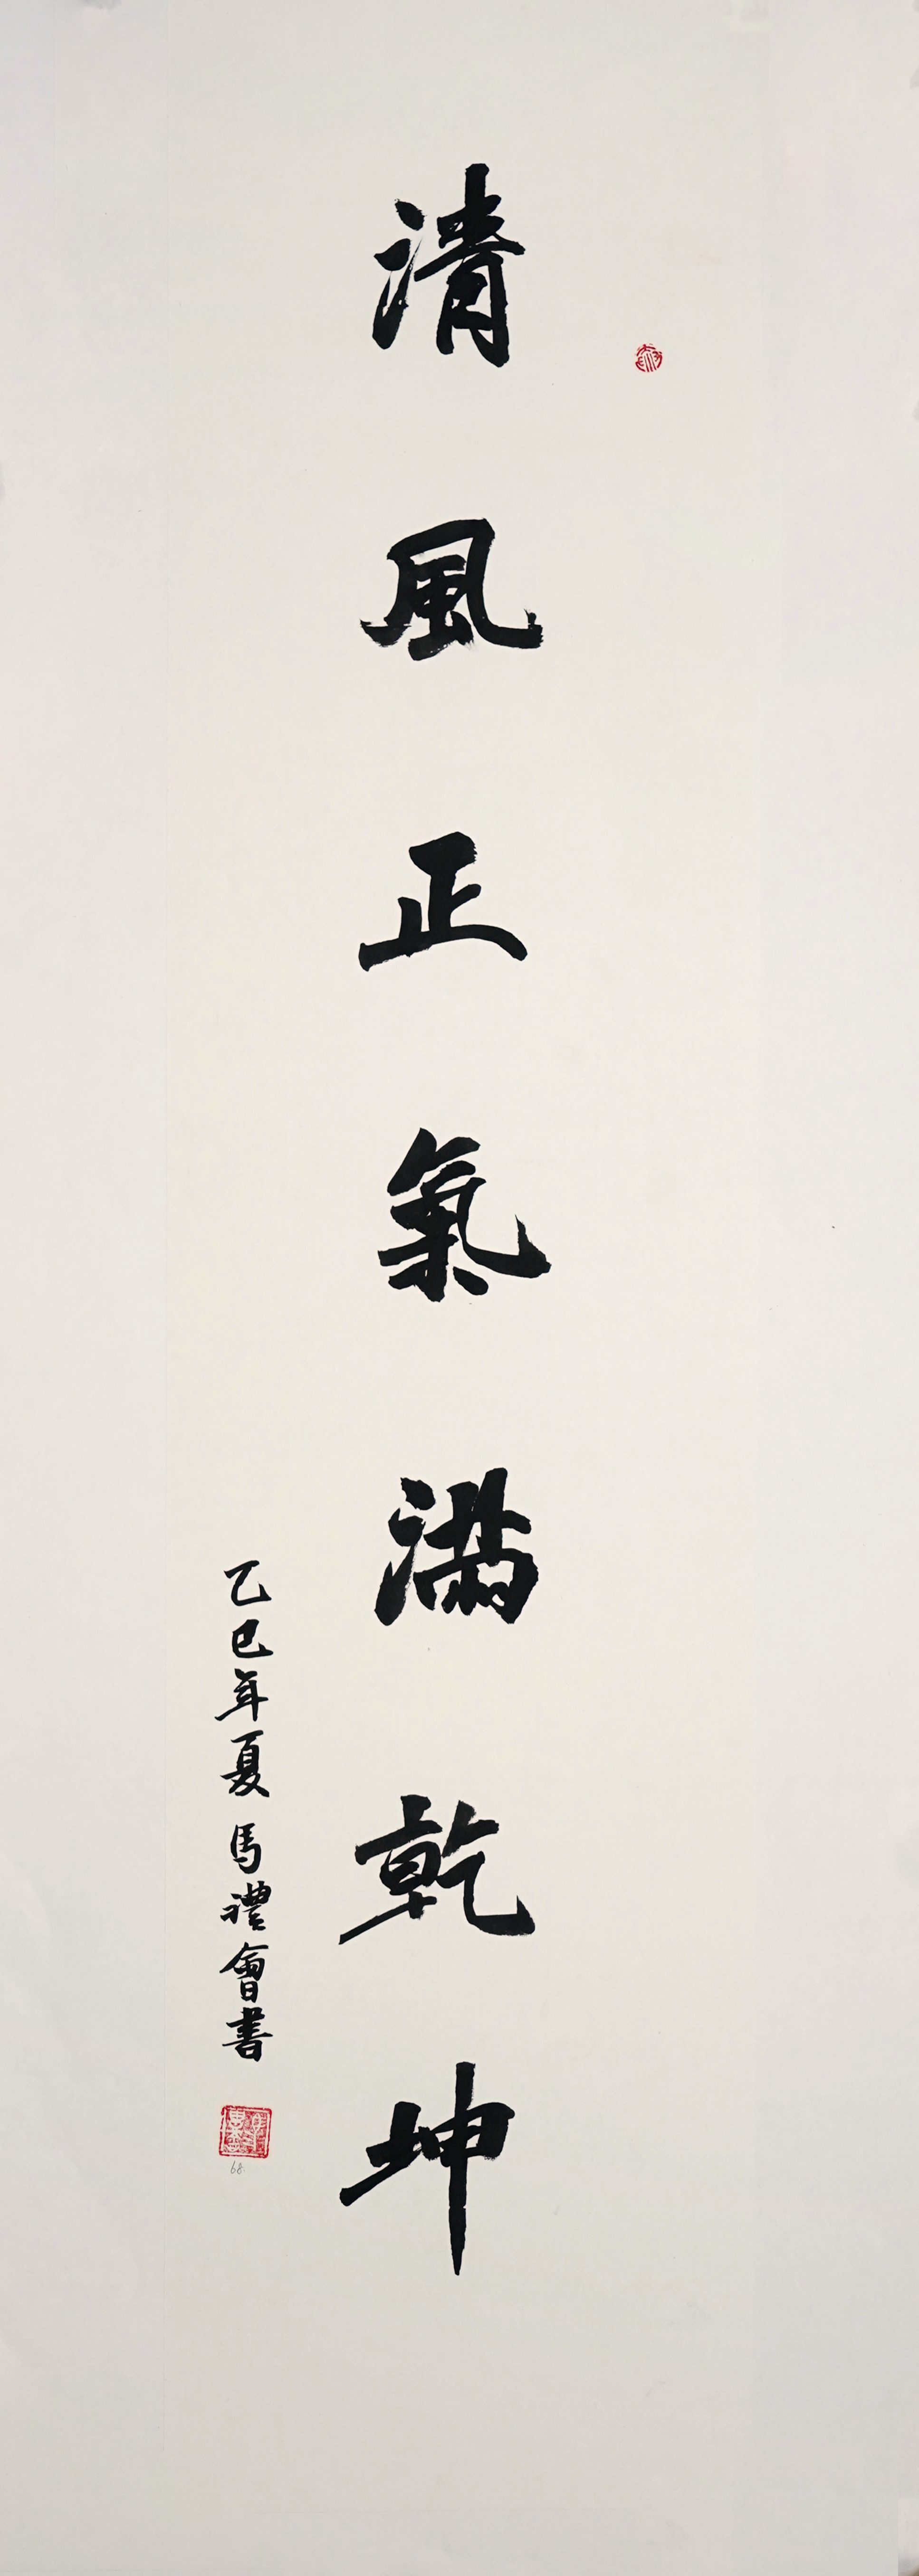 清風正氣滿乾坤
乙巳年夏 馬禮會書
68